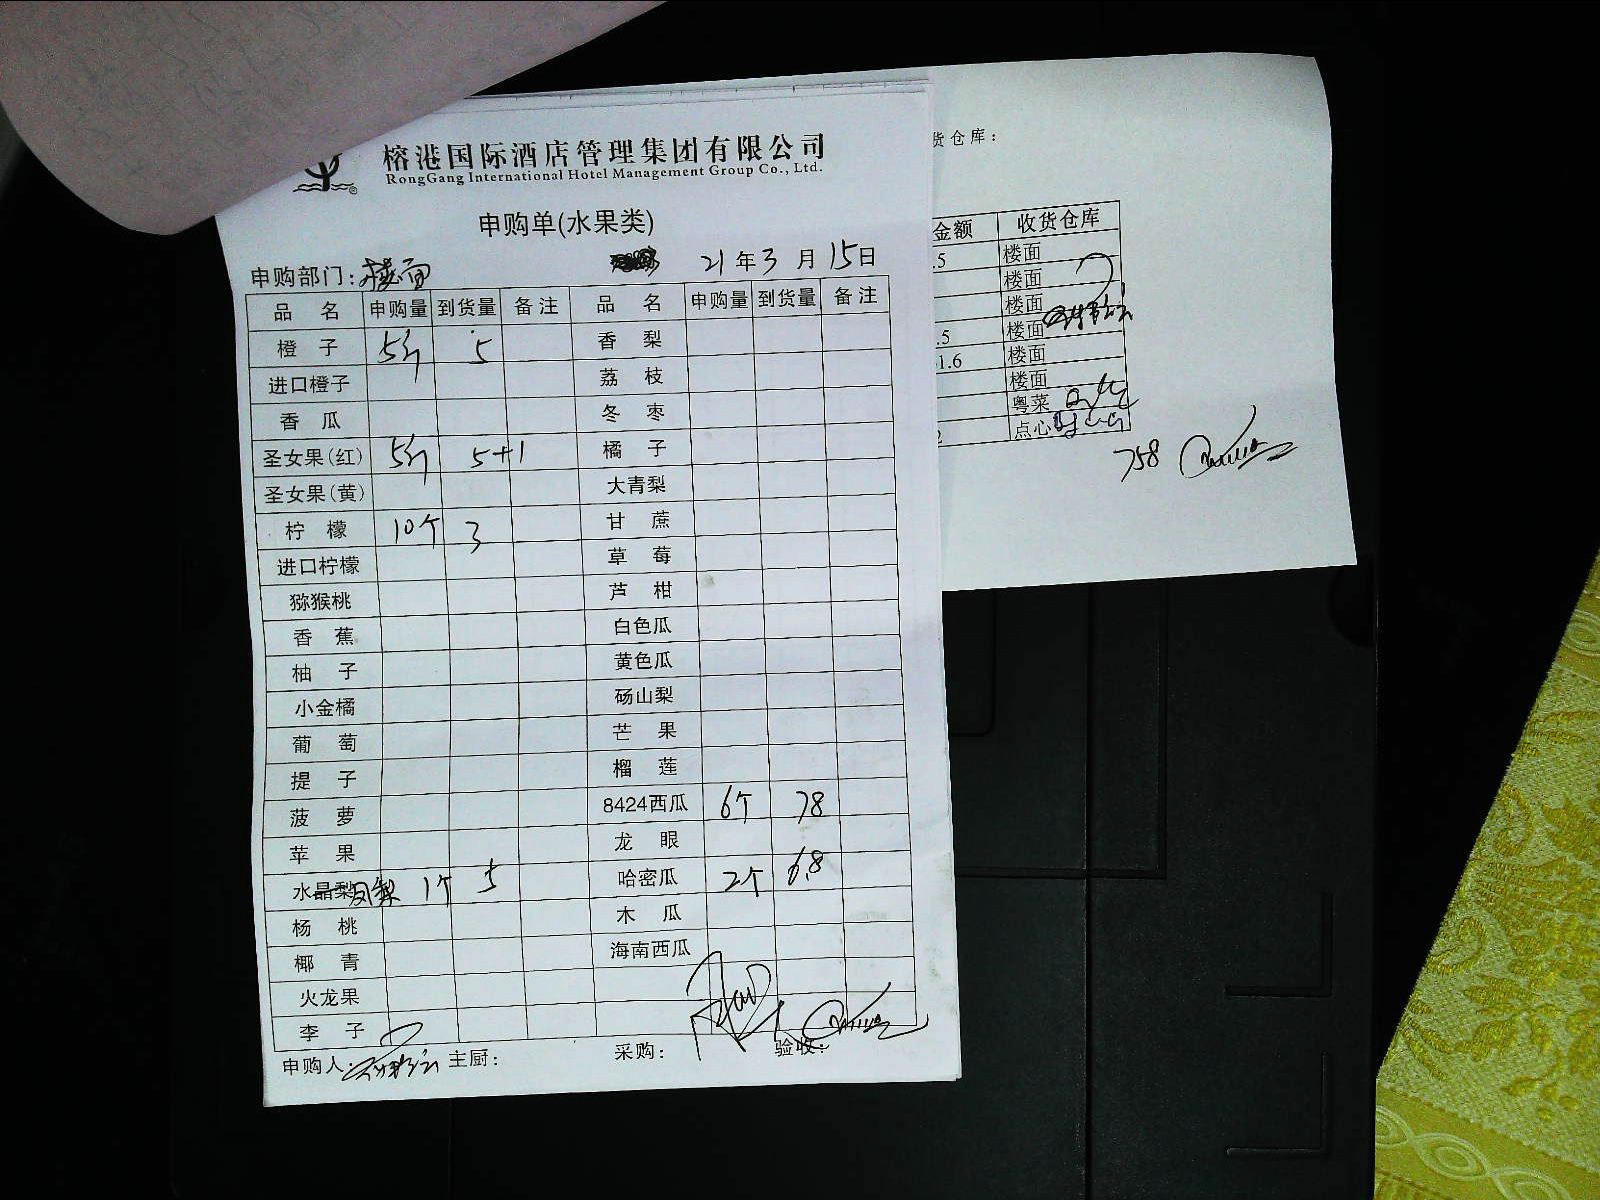 榕港国际酒店管理集团有限公司
RongGang International Hotel Management Group Co., Ltd.
®
申购单(水果类)
申购部门: 楼面 21年3月15日
品名 申购量 到货量 备注 品名 申购量 到货量 备注
橙子 5斤 5 香梨
进口橙子 荔枝
香瓜 冬枣
圣女果(红) 5斤 5+1 橘子
圣女果(黄) 大青梨
柠檬 10个 3 甘蔗
进口柠檬 草莓
猕猴桃 芦柑
香蕉 白色瓜
柚子 黄色瓜
小金橘 砀山梨
葡萄 芒果
提子 榴莲
菠萝 8424西瓜 6个 78
苹果 龙眼
水晶梨 1个 5 哈密瓜 2个 6.8
杨桃 木瓜
椰青 海南西瓜
火龙果
李子
申购人: 主厨: 采购: 验收:
货仓库:
金额 收货仓库
.5 楼面
楼面
楼面
.5 楼面
1.6 楼面
楼面
粤菜
2 点心
758